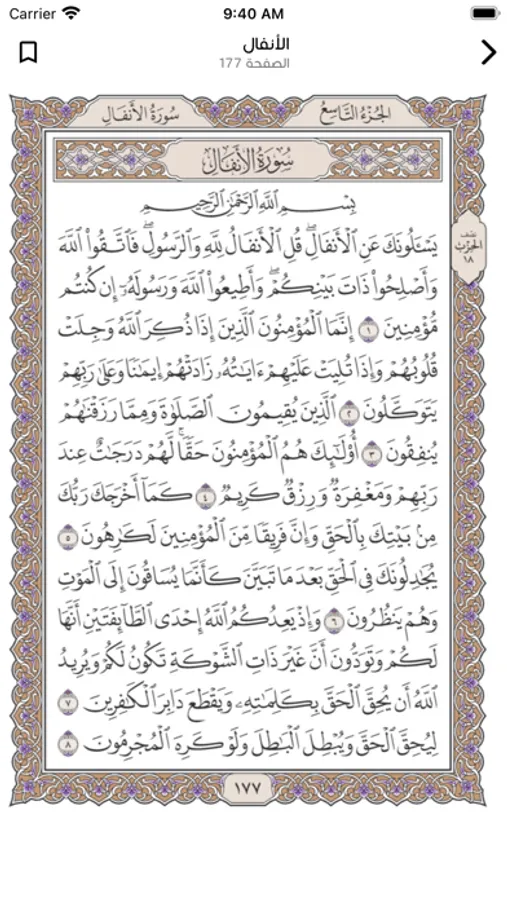 Carrier 9:40 AM
الأنفال
الصفحة 177
الجُزْءُ التَّاسِعُ سُورَةُ الأَنفَالِ
سُورَةُ الأَنفَالِ
بِسْمِ ٱللَّهِ ٱلرَّحْمَٰنِ ٱلرَّحِيمِ
يَسْـَٔلُونَكَ عَنِ ٱلْأَنفَالِۖ قُلِ ٱلْأَنفَالُ لِلَّهِ وَٱلرَّسُولِۖ فَٱتَّقُوا۟ ٱللَّهَ
وَأَصْلِحُوا۟ ذَاتَ بَيْنِكُمْۖ وَأَطِيعُوا۟ ٱللَّهَ وَرَسُولَهُۥٓ إِن كُنتُم
مُّؤْمِنِينَ ١ إِنَّمَا ٱلْمُؤْمِنُونَ ٱلَّذِينَ إِذَا ذُكِرَ ٱللَّهُ وَجِلَتْ
قُلُوبُهُمْ وَإِذَا تُلِيَتْ عَلَيْهِمْ ءَايَٰتُهُۥ زَادَتْهُمْ إِيمَٰنًا وَعَلَىٰ رَبِّهِمْ
يَتَوَكَّلُونَ ٢ ٱلَّذِينَ يُقِيمُونَ ٱلصَّلَوٰةَ وَمِمَّا رَزَقْنَٰهُمْ
يُنفِقُونَ ٣ أُو۟لَٰٓئِكَ هُمُ ٱلْمُؤْمِنُونَ حَقًّاۚ لَّهُمْ دَرَجَٰتٌ عِندَ
رَبِّهِمْ وَمَغْفِرَةٌ وَرِزْقٌ كَرِيمٌ ٤ كَمَآ أَخْرَجَكَ رَبُّكَ
مِنۢ بَيْتِكَ بِٱلْحَقِّ وَإِنَّ فَرِيقًا مِّنَ ٱلْمُؤْمِنِينَ لَكَٰرِهُونَ ٥
يُجَٰدِلُونَكَ فِى ٱلْحَقِّ بَعْدَ مَا تَبَيَّنَ كَأَنَّمَا يُسَاقُونَ إِلَى ٱلْمَوْتِ
وَهُمْ يَنظُرُونَ ٦ وَإِذْ يَعِدُكُمُ ٱللَّهُ إِحْدَى ٱلطَّآئِفَتَيْنِ أَنَّهَا
لَكُمْ وَتَوَدُّونَ أَنَّ غَيْرَ ذَاتِ ٱلشَّوْكَةِ تَكُونُ لَكُمْ وَيُرِيدُ
ٱللَّهُ أَن يُحِقَّ ٱلْحَقَّ بِكَلِمَٰتِهِۦ وَيَقْطَعَ دَابِرَ ٱلْكَٰفِرِينَ ٧
لِيُحِقَّ ٱلْحَقَّ وَيُبْطِلَ ٱلْبَٰطِلَ وَلَوْ كَرِهَ ٱلْمُجْرِمُونَ ٨
نصف
الحزب
١٨
١٧٧